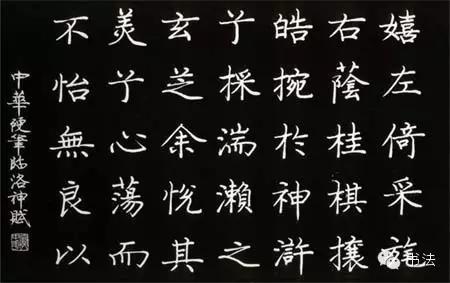 嬉左倚采旄
右蔭桂棋攘
皓捥於神滸
兮採湍瀨之
玄芝余悅其
羙兮心蕩而
不怡無良以
中華硬筆臨洛神賦
书法